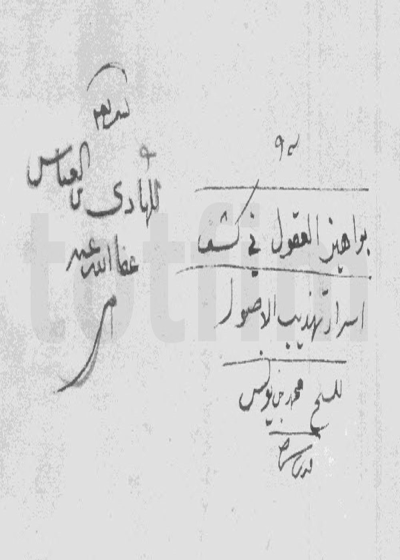 براهين العقول في كشف
اسرار تهذيب الاصول
للشيخ محمد بن يونس
قدس سره
للهادي بن العباس
عفا الله عنه
totfim